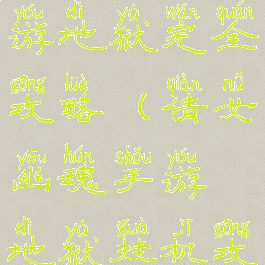 yóu dì yù wán quán
游地狱完全
gōng lüè qiàn nǚ
攻略（倩女
yōu hún shǒu yóu
幽魂手游
dì yù guà jī gōng
地狱挂机攻